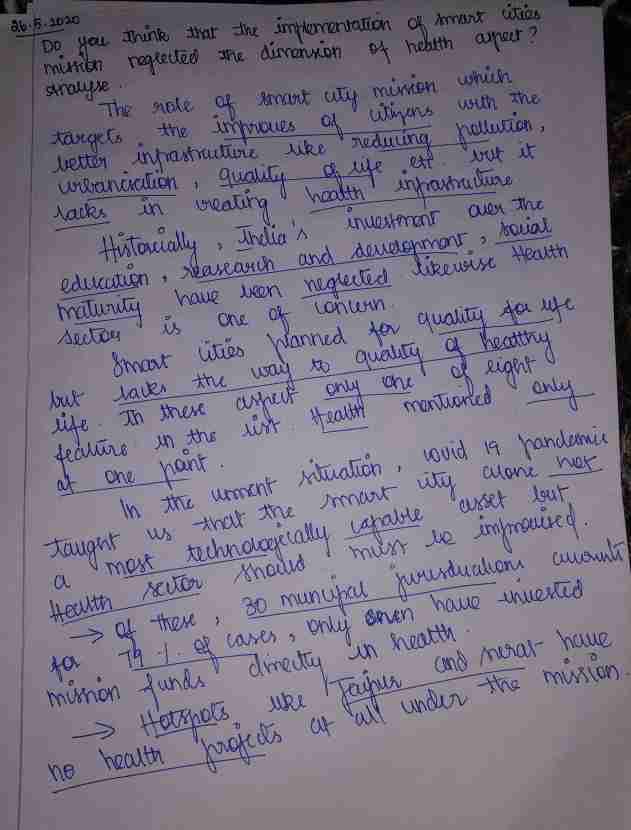 26.5.2020
Do you think that the implementation of smart cities
mission neglected the dimension of health aspect?
Analyse.
The role of smart city mission which
targets the improves of citizens with the
better infrastructure like reducing pollution,
urbanisation, quality of life etc. but it
lacks in creating health infrastructure
Historically, India's investment over the
education, reasearch and development, social
maturity have been neglected likewise Health
sector is one of concern.
Smart cities planned for quality for life
but lacks the way to quality of healthy
life. In these aspect only one of eight
feature in the list Health mentioned only
at one point.
In the current situation, covid 19 pandemic
taught us that the smart city alone not
a most technologically capable asset but
Health sector should must be improvised.
→ Of these, 30 municipal jurisductions accounts
for 79 % of cases, only seven have invested
mission funds directly in health.
→ Hotspots like Jaipur and have
no health projects at all under the mission.